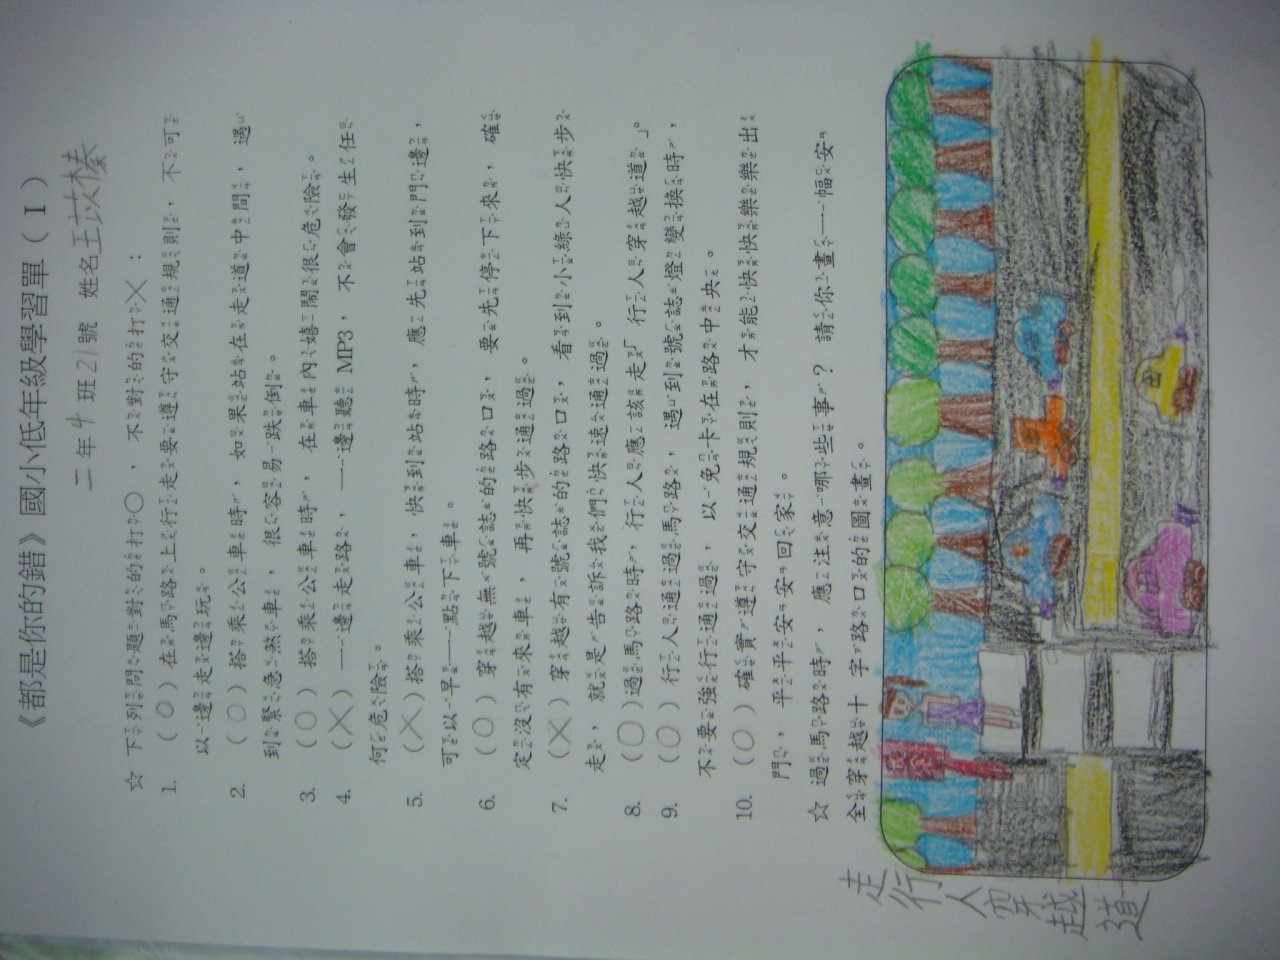 《都是你的錯》國小低年級學習單（I）
二年4班21號 姓名王苡榛
☆ 下列問題對的打○，不對的打×：
1. （○）在馬路上行走要遵守交通規則，不可
以邊走邊玩。
2. （○）搭乘公車時，如果站在走道中間，遇
到緊急煞車，很容易跌倒。
3. （○）搭乘公車時，在車內嬉鬧很危險。
4. （×）一邊走路，一邊聽MP3，不會發生任
何危險。
5. （×）搭乘公車，快到站時，應先站到門邊，
可以早一點下車。
6. （○）穿越無號誌的路口，要先停下來，確
定沒有來車，再快步通過。
7. （×）穿越有號誌的路口，看到小綠人快步
走，就是告訴我們快速通過。
8. （○）過馬路時，行人應該走「行人穿越道」。
9. （○）行人通過馬路，遇到號誌燈變換時，
不要強行通過，以免卡在路中央。
10. （○）確實遵守交通規則，才能快快樂樂出
門，平平安安回家。
☆ 過馬路時，應注意哪些事？請你畫一幅安
全穿越十字路口的圖畫。
走行人穿越道